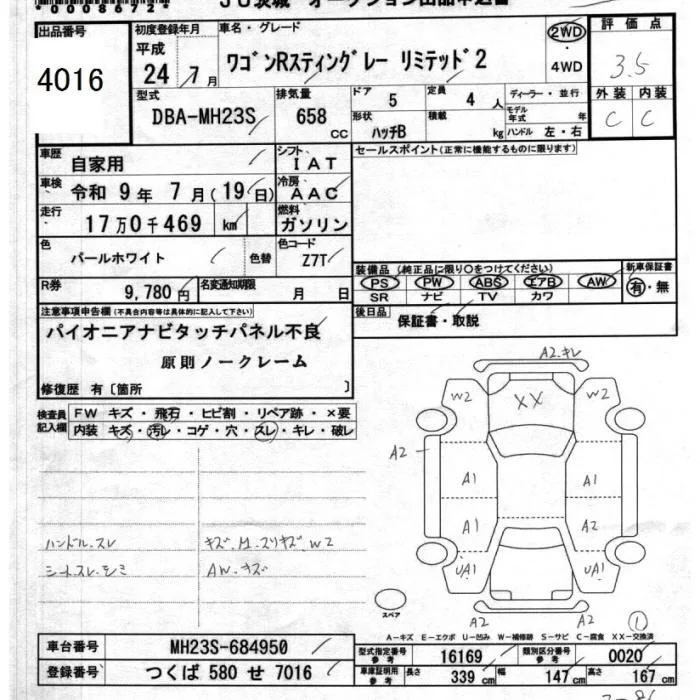 0008672
JU茨城 オークション出品申込書
出品番号 初度登録年月 車名・グレード 評価点
4016 平成 24 年 7月 ワゴンRスティングレー リミテッド2 2WD・4WD 3.5
型式 排気量 ドア 5 定員 4 人 ディーラー・並行 外装 内装
DBA-MH23S 658 CC 形状 ハッチB 積載 kg モデル年式 年 ハンドル 左・右 C C
車歴 自家用 シフト I A T セールスポイント(正常に機能するものに限ります)
車検 令和 9 年 7 月(19 日) 冷房 A A C
走行 17 万 0 千 469 km 燃料 ガソリン
色 パールホワイト 色替 色コード Z7T
装備品 (純正品に限り○をつけてください) 新車保証書
R券 9,780 円 名変通知期限 月 日 PS PW ABS エアB AW 有・無
SR ナビ TV カワ
注意事項申告欄(不具合内容等は具体的に記入して下さい) 後日品 保証書・取説
パイオニアナビタッチパネル不良
原則ノークレーム
修復歴 有〔箇所 〕
検査員記入欄 FW キズ・飛石・ヒビ割・リペア跡・×要
内装 キズ・汚レ・コゲ・穴・スレ・キレ・破レ
A2.キレ
W2 XX W2
A2
A1 A1
A1 A2
UA1 UA1
A2 A2
ハンドル.スレ キズ.H.スリキズ.W2
シートスレ.シミ AW.キズ
スペア
①
A-キズ E-エクボ U-凹み W-補修跡 S-サビ C-腐食 XX-交換済
車台番号 MH23S-684950 型式指定番号 参考 16169 類別区分番号 参考 0020
登録番号 つくば 580 せ 7016 車庫証明用 参考 長さ 339 cm 幅 147 cm 高さ 167 cm